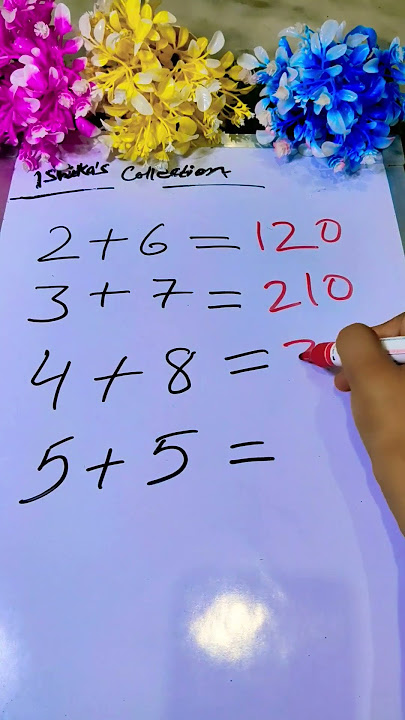 Ishika's Collection
2 + 6 = 120
3 + 7 = 210
4 + 8 =
5 + 5 =